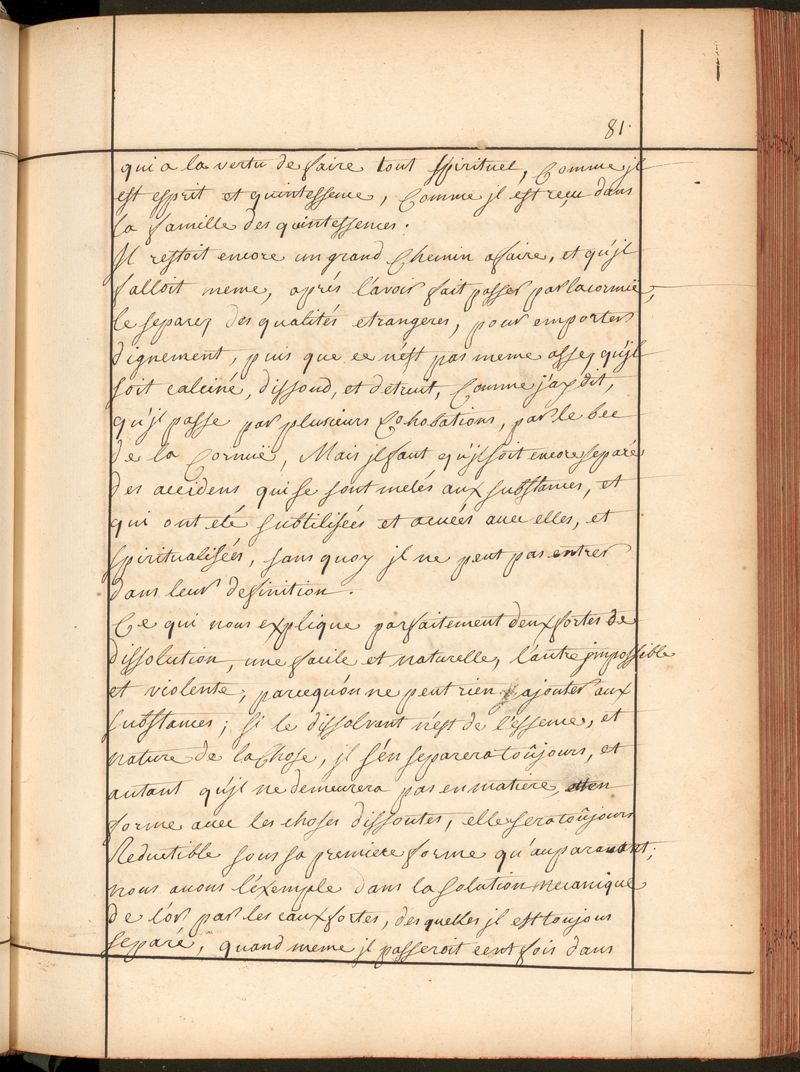 81.
qui a la vertu de faire tout spirituel, Comme jl
est esprit et quintessence, Comme jl est reçu dans
la famille des quintessences.
Jl restoit encore un grand Chemin afaire, et qu'jl
falloit meme, aprés l'avoir fait passer par la cornüe,
le separez des qualités etrangeres, pour emporter
dignement, puis que ce n'est pas meme assez qu'jl
soit calciné, dissoud, et detruit, Comme j'ay dit,
qu'jl passe par plusieurs Cohobations, par le bec
de la Cornuë, Mais jl faut qu'jl soit encore separé
des accidens qui se sont melés aux substances, et
qui ont eté subtilisées et acuées avec elles, et
spiritualisées, sans quoy jl ne peut pas entrer
dans leur definition.
Ce qui nous explique parfaitement deux sortes de
dissolution, une facile et naturelle, l'autre jmpossible
et violente, parcequ'on ne peut rien ajouter aux
substances; si le dissolvant n'est de l'essence, et
nature de la Chose, jl s'en separera toûjours, et
autant qu'jl ne demeurera pas en matiere, et en
forme avec les choses dissoutes, elle sera toûjours
Reductible sous sa premiere forme qu'auparavant;
nous avons l'éxemple dans la solution mecanique
de l'or par les eaux fortes, desquelles jl est toujours
separé, quand meme jl passeroit cent fois dans